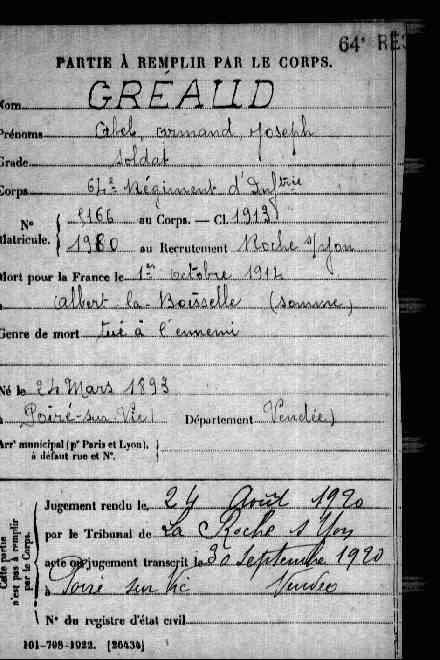 64e RÉ
PARTIE À REMPLIR PAR LE CORPS.
Nom GRÉAUD
Prénoms Abel, Armand, Joseph
Grade soldat
Corps 64e Régiment d'Infterie
No Matricule. { 5166 au Corps. — Cl. 1913
1980 au Recrutement Roche s/yon
Mort pour la France le 1er octobre 1914
à albert-la-Boisselle (somme)
Genre de mort tué à l'ennemi
Né le 24 Mars 1893
à Poiré-sur Vie Département Vendée
Arrt municipal (pr Paris et Lyon), à défaut rue et No.
Cette partie n'est pas à remplir par le Corps.
Jugement rendu le 24 Août 1920
par le Tribunal de La Roche s Yon
acte ou jugement transcrit le 30 Septembre 1920
à Poiré sur Vie Vendée
No du registre d'état civil
101-708-1922. [26434]